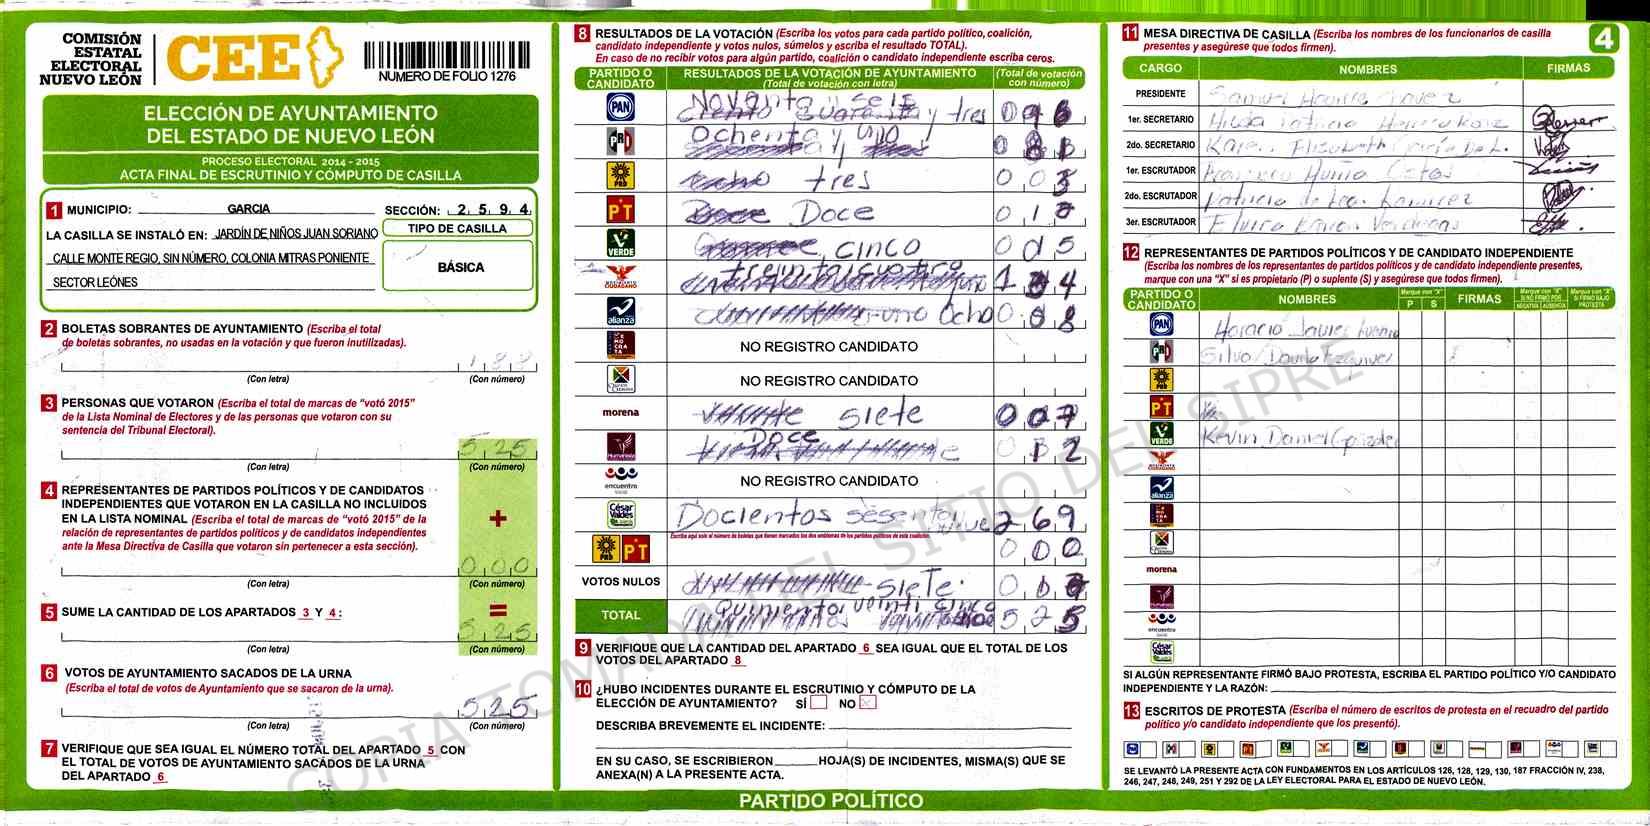 COMISIÓN
ESTATAL
ELECTORAL
NUEVO LEÓN
CEE
NUMERO DE FOLIO 1276
ELECCIÓN DE AYUNTAMIENTO
DEL ESTADO DE NUEVO LEÓN
PROCESO ELECTORAL 2014 - 2015
ACTA FINAL DE ESCRUTINIO Y CÓMPUTO DE CASILLA
1 MUNICIPIO: GARCIA SECCIÓN: 2 5 9 4
LA CASILLA SE INSTALÓ EN: JARDÍN DE NIÑOS JUAN SORIANO
CALLE MONTE REGIO, SIN NÚMERO, COLONIA MITRAS PONIENTE
SECTOR LEÓNES
TIPO DE CASILLA
BÁSICA
2 BOLETAS SOBRANTES DE AYUNTAMIENTO (Escriba el total
de boletas sobrantes, no usadas en la votación y que fueron inutilizadas).
188
(Con letra) (Con número)
3 PERSONAS QUE VOTARON (Escriba el total de marcas de “votó 2015”
de la Lista Nominal de Electores y de las personas que votaron con su
sentencia del Tribunal Electoral).
525
(Con letra) (Con número)
4 REPRESENTANTES DE PARTIDOS POLÍTICOS Y DE CANDIDATOS
INDEPENDIENTES QUE VOTARON EN LA CASILLA NO INCLUIDOS
EN LA LISTA NOMINAL (Escriba el total de marcas de “votó 2015” de la
relación de representantes de partidos políticos y de candidatos independientes
ante la Mesa Directiva de Casilla que votaron sin pertenecer a esta sección).
+
000
(Con letra) (Con número)
5 SUME LA CANTIDAD DE LOS APARTADOS 3 Y 4:
=
525
(Con letra) (Con número)
6 VOTOS DE AYUNTAMIENTO SACADOS DE LA URNA
(Escriba el total de votos de Ayuntamiento que se sacaron de la urna).
525
(Con letra) (Con número)
7 VERIFIQUE QUE SEA IGUAL EL NÚMERO TOTAL DEL APARTADO 5 CON
EL TOTAL DE VOTOS DE AYUNTAMIENTO SACADOS DE LA URNA
DEL APARTADO 6
8 RESULTADOS DE LA VOTACIÓN (Escriba los votos para cada partido político, coalición,
candidato independiente y votos nulos, súmelos y escriba el resultado TOTAL).
En caso de no recibir votos para algún partido, coalición o candidato independiente escriba ceros.
PARTIDO O
CANDIDATO
RESULTADOS DE LA VOTACIÓN DE AYUNTAMIENTO
(Total de votación con letra)
(Total de votación
con número)
PAN Novanta y seis 096
PRI Ochenta y uno 081
PRD tres 003
PT Doce 012
VERDE cinco 005
MOVIMIENTO CIUDADANO treinta cuatro 134
alianza Ocho 008
DEMÓCRATA NO REGISTRO CANDIDATO
Cruzada Ciudadana NO REGISTRO CANDIDATO
morena siete 007
Humanista Doce 012
encuentro social NO REGISTRO CANDIDATO
César Valdés Docientos sesenta nueve 269
Escriba aquí solo el número de boletas que tienen marcados los dos emblemas de los partidos políticos de esta coalición.
PRD PT 000
VOTOS NULOS siete 007
TOTAL Quinientos veinti cinco 525
9 VERIFIQUE QUE LA CANTIDAD DEL APARTADO 6 SEA IGUAL QUE EL TOTAL DE LOS
VOTOS DEL APARTADO 8
10 ¿HUBO INCIDENTES DURANTE EL ESCRUTINIO Y CÓMPUTO DE LA
ELECCIÓN DE AYUNTAMIENTO? SÍ NO X
DESCRIBA BREVEMENTE EL INCIDENTE:
EN SU CASO, SE ESCRIBIERON HOJA(S) DE INCIDENTES, MISMA(S) QUE SE
ANEXA(N) A LA PRESENTE ACTA.
11 MESA DIRECTIVA DE CASILLA (Escriba los nombres de los funcionarios de casilla
presentes y asegúrese que todos firmen).
4
CARGO NOMBRES FIRMAS
PRESIDENTE Samuel Aguirre Chavez
1er. SECRETARIO Hilda Patricia Herrera
2do. SECRETARIO Karen Elizabeth Garcia De L.
1er. ESCRUTADOR Francisco
2do. ESCRUTADOR Patricia de Leon Ramirez
3er. ESCRUTADOR Elvira
12 REPRESENTANTES DE PARTIDOS POLÍTICOS Y DE CANDIDATO INDEPENDIENTE
(Escriba los nombres de los representantes de partidos políticos y de candidato independiente presentes,
marque con una “X” si es propietario (P) o suplente (S) y asegúrese que todos firmen).
PARTIDO O
CANDIDATO
NOMBRES
Marque con “X”
P S
FIRMAS
Marque con “X”
SI NO FIRMÓ POR
NEGATIVA AUSENCIA
Marque con “X”
SI FIRMÓ BAJO
PROTESTA
PAN Horacio Javier
PRI
PRD
PT
VERDE Kevin Daniel Gonzalez
MOVIMIENTO CIUDADANO
alianza
DEMÓCRATA
Cruzada Ciudadana
morena
Humanista
encuentro social
César Valdés
SI ALGÚN REPRESENTANTE FIRMÓ BAJO PROTESTA, ESCRIBA EL PARTIDO POLÍTICO Y/O CANDIDATO
INDEPENDIENTE Y LA RAZÓN:
13 ESCRITOS DE PROTESTA (Escriba el número de escritos de protesta en el recuadro del partido
político y/o candidato independiente que los presentó).
SE LEVANTÓ LA PRESENTE ACTA CON FUNDAMENTOS EN LOS ARTÍCULOS 126, 128, 129, 130, 187 FRACCIÓN IV, 238,
246, 247, 248, 249, 251 Y 292 DE LA LEY ELECTORAL PARA EL ESTADO DE NUEVO LEÓN.
PARTIDO POLÍTICO
COPIA TOMADA DEL SITIO DEL SIPRE